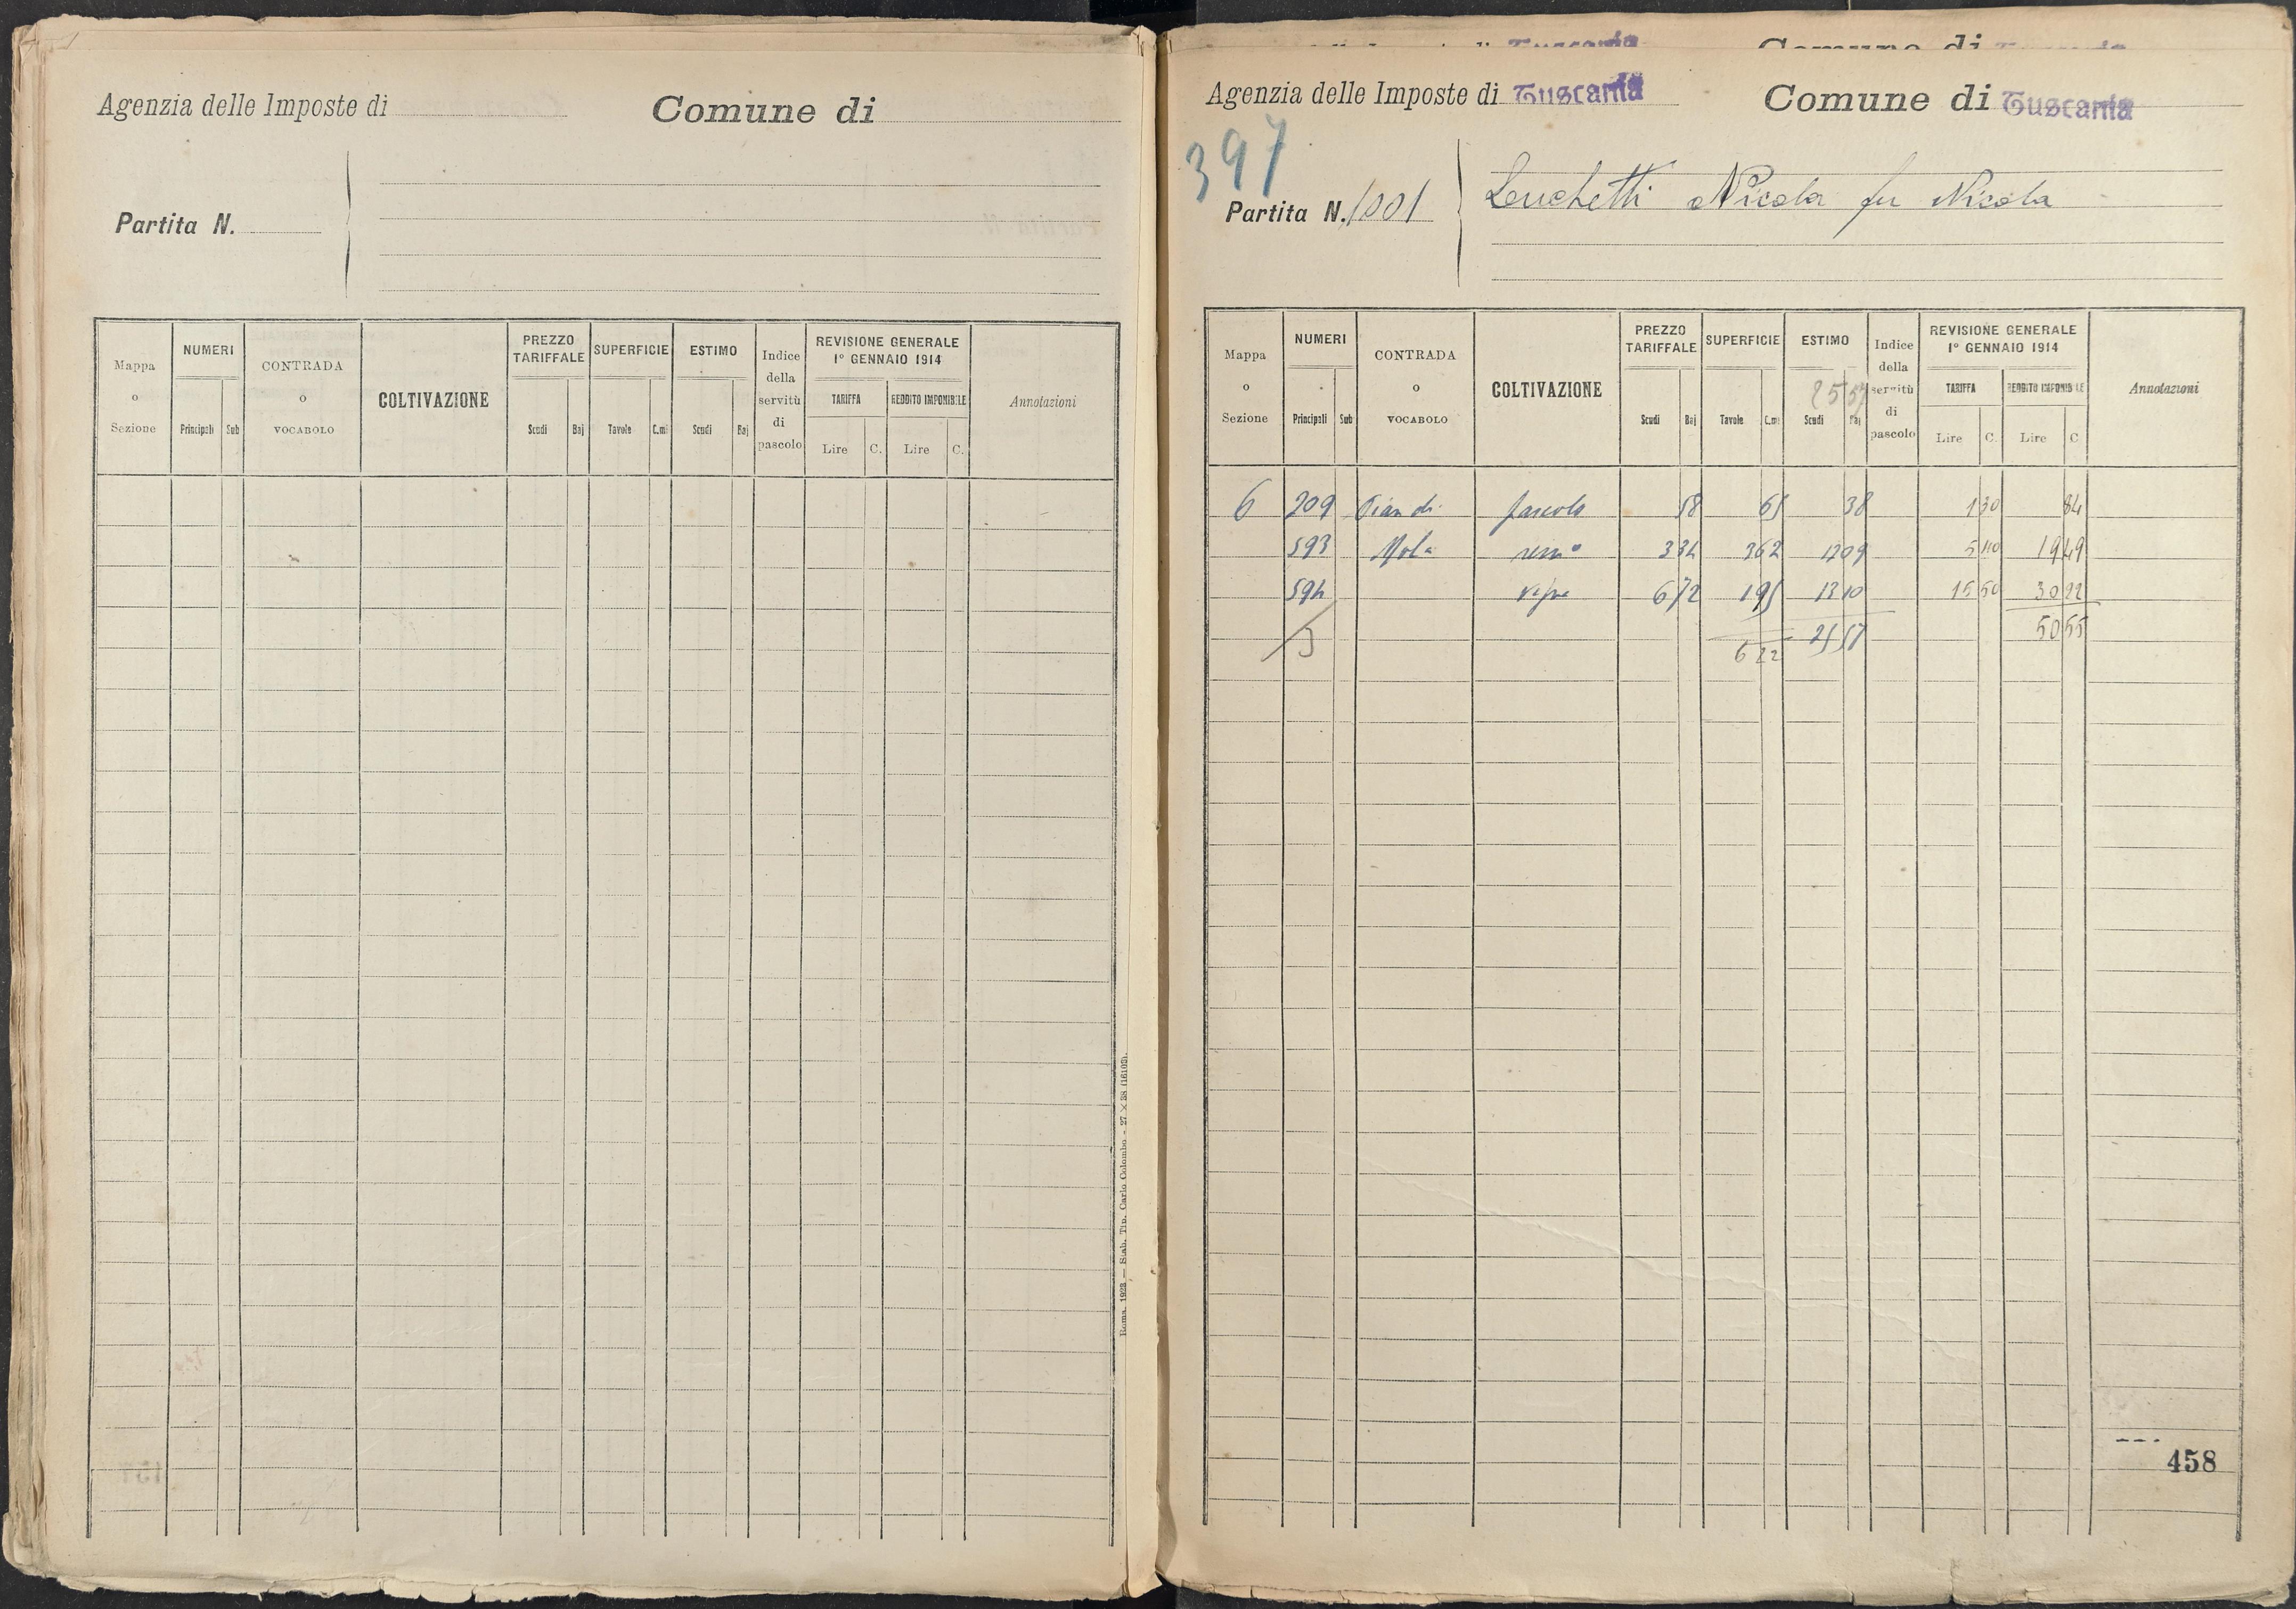 Agenzia delle Imposte di
Comune di
Partita N.
Mappa o Sezione
NUMERI
Principali Sub
CONTRADA o VOCABOLO
COLTIVAZIONE
PREZZO TARIFFALE
Scudi Baj
SUPERFICIE
Tavole C.mi
ESTIMO
Scudi Baj
Indice della servitù di pascolo
REVISIONE GENERALE
1° GENNAIO 1914
TARIFFA
Lire C.
REDDITO IMPONIBILE
Lire C.
Annotazioni
Roma, 1923 — Stab. Tip. Carlo Colombo - 27 × 38 (16103).
Tuscania
Comune di
Agenzia delle Imposte di Tuscania
Comune di Tuscania
397
Partita N. 1001
Luchetti Nicola fu Nicola
Mappa o Sezione
NUMERI
Principali Sub
CONTRADA o VOCABOLO
COLTIVAZIONE
PREZZO TARIFFALE
Scudi Baj
SUPERFICIE
Tavole C.mi
ESTIMO
25 57
Scudi Baj
Indice della servitù di pascolo
REVISIONE GENERALE
1° GENNAIO 1914
TARIFFA
Lire C.
REDDITO IMPONIBILE
Lire C
Annotazioni
6 209 Pian di pascolo 58 65 38 1 30 84
593 Mola sem° 3 34 3 62 12 09 5 40 19 49
594 vigna 6 72 1 95 13 10 15 50 30 22
3 6 22 25 57 50 55
458